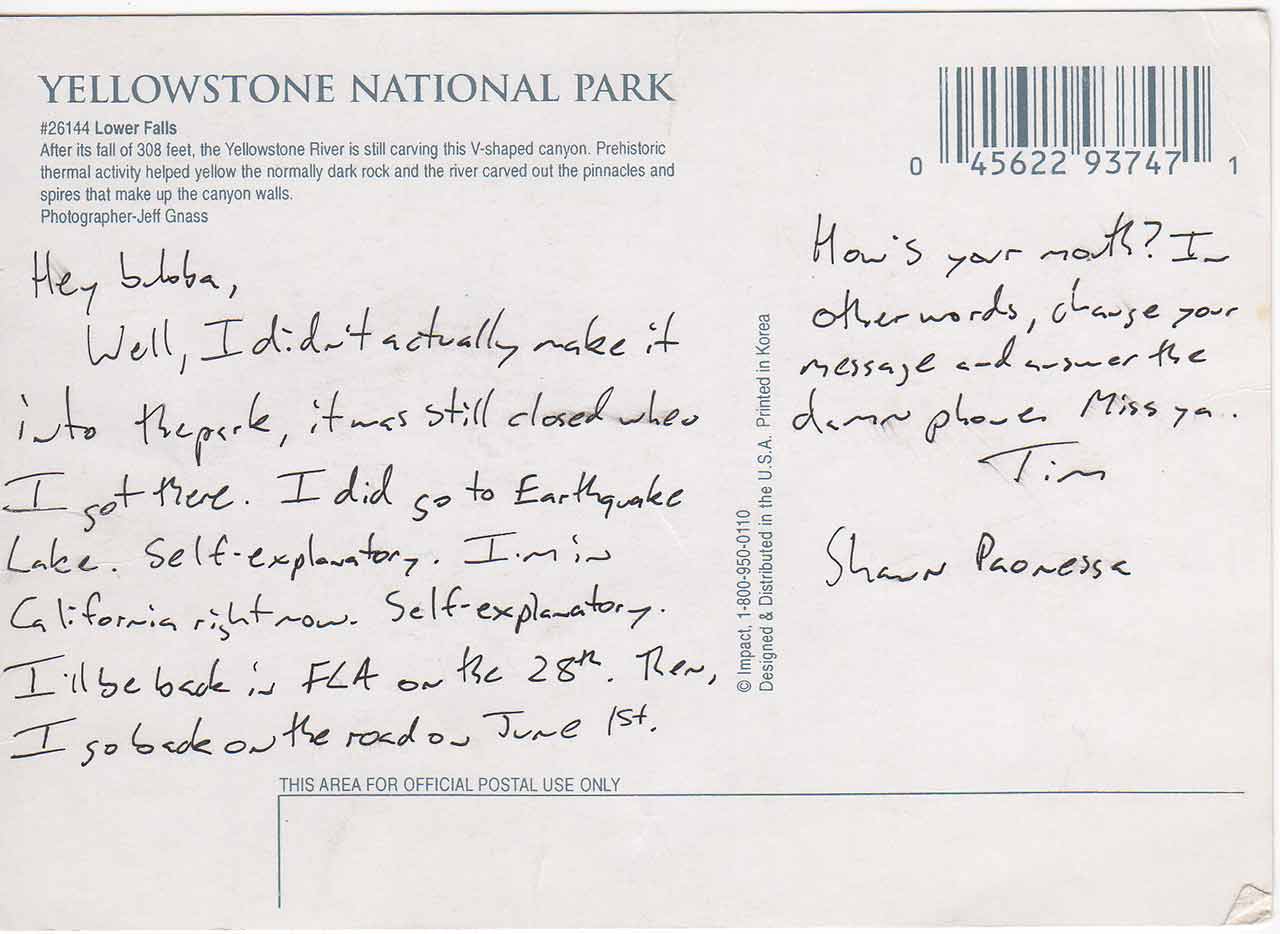 YELLOWSTONE NATIONAL PARK
#26144 Lower Falls
After its fall of 308 feet, the Yellowstone River is still carving this V-shaped canyon. Prehistoric
thermal activity helped yellow the normally dark rock and the river carved out the pinnacles and
spires that make up the canyon walls.
Photographer-Jeff Gnass
Hey
Well, I didn't actually make it
into the park, it was still closed when
I got there. I did go to Earthquake
Lake. Self-explanatory. I'm in
California right now. Self-explanatory.
I'll be back in FLA on the 28th. Then,
I go back on the road on June 1st.
0 45622 93747 1
How's your mouth? In
other words, change your
message and answer the
damn phone. Miss ya.
Tim
Shawn Paonessa
© Impact, 1-800-950-0110
Designed & Distributed in the U.S.A. Printed in Korea
THIS AREA FOR OFFICIAL POSTAL USE ONLY